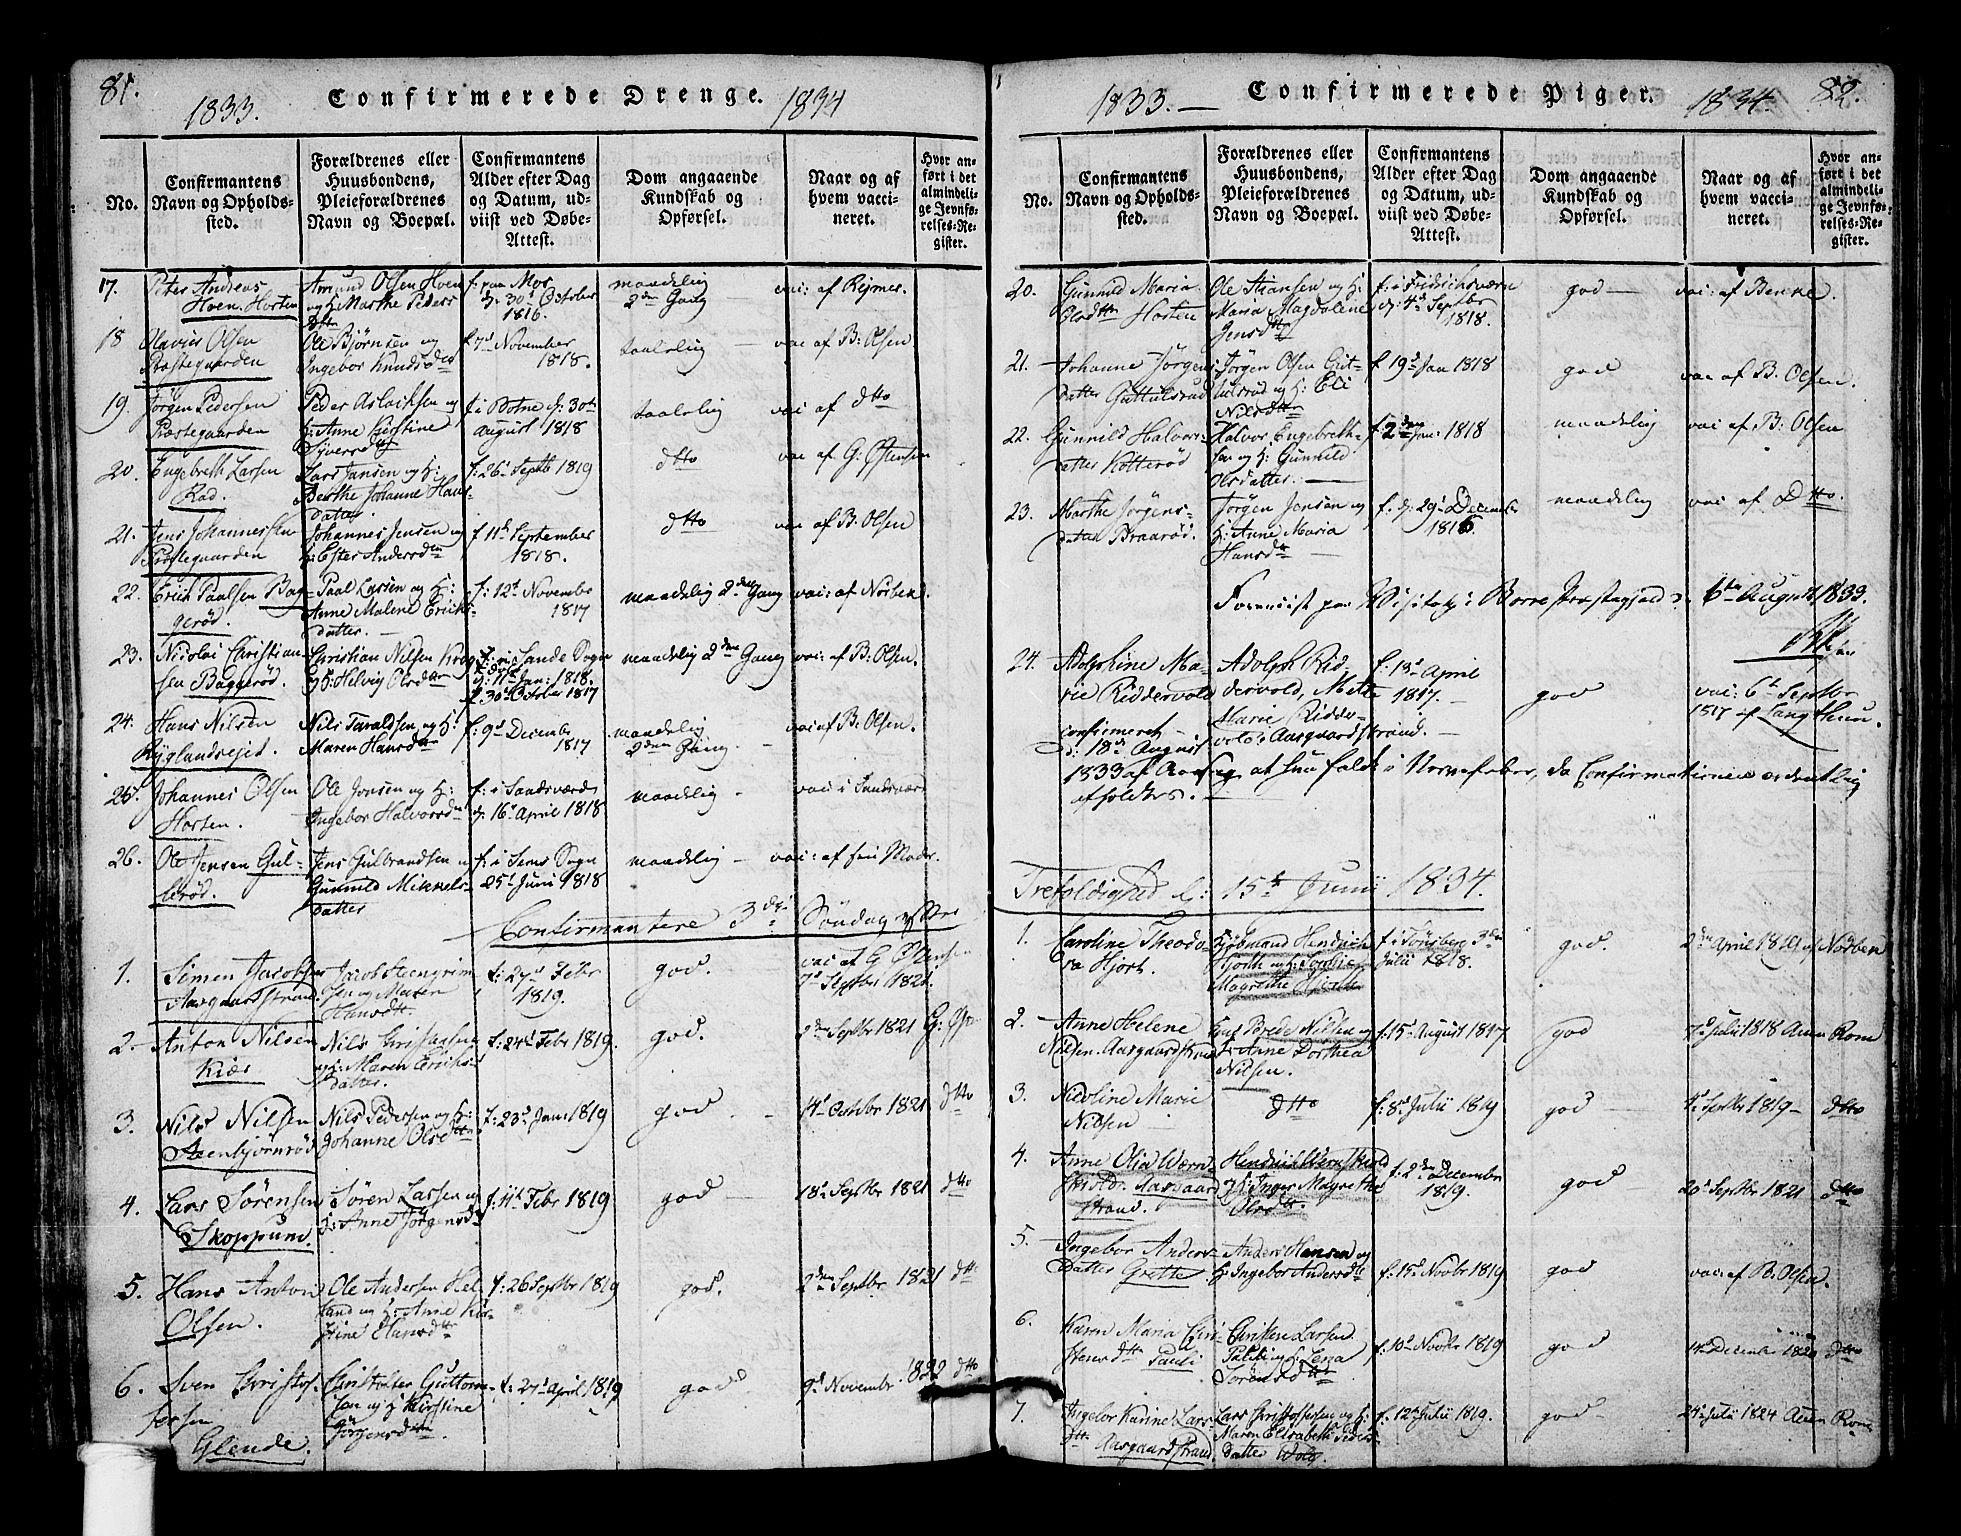 81.
1833.
Confirmerede Drenge.
1834
No.
Confirmantens
Navn og Opholds-
sted.
Forældrenes eller
Huusbondens,
Pleieforældrenes
Navn og Boepæl.
Confirmantens
Alder efter Dag
og Datum, ud-
viist ved Døbe-
Attest.
Dom angaaende
Kundskab og
Opførsel.
Naar og af
hvem vacci-
neret.
Hvor an-
ført i det
almindeli-
ge Jevnfø-
relses-Re-
gister.
17.
Peter Andreas
Hoen. Horten
Amund Olsen Hoen
og H: Marthe Peders
dttr
f: paa Mos
d: 30t October
1816.
maadelig
2den Gang
vac: af Rejmer.
18
Olavus Olsen
Præstegaarden
Ole Bjørnsen og
Ingebor Knudsdtr
f 7d November
1818.
taalelig
vac af B: Olsen
19.
Jørgen Pedersen
Præstegaarden
Peder Aslacksen og
H: Anne Kirstine
Siversdtr
f i Botne d: 30te
august 1818
taalelig
vac af dtto
20.
Engebreth Larsen
Rød.
Lars Jansen og H:
Berthe Johanne Hans-
datter.
f: 26d Septb 1819
dtto
vac af G: Østensen
21.
Jens Johannessen
Præstegaarden
Johannes Jensen og
H: Ester Andersdtr
f 11d September
1818.
dtto
vac af B. Olsen
22.
Erich Paulsen Bag-
gerød.
Paal Larsen og H:
Anne Malene Erichs-
datter.
f: 12d November
1817
maadelig 2den Gang
vac: af Norben
23.
Nicolai Christian-
sen Baggerød.
Christian Nilsen Krog
og H: Helvig Olsdtr
f: i Sande Sogn
d: 11t Jan: 1818.
f 30d October 1817
maadelig 2den Gang
vac: af B: Olsen.
24.
Hans Nilsen
Ryglandsejet.
Nils Taraldsen og H:
Maren Hansdtr
f: 9d Decembr
1817
maadelig
2den Gang.
vac af B: Olsen.
25.
Johannes Olsen
Horten.
Ole Jonsen og H:
Ingebor Halvorsdtr
f: i Sandsværd
d: 16d April 1818
maadelig
vac i Sandsværd
26.
Ole Jensen Gul-
lerød.
Jens Gulbrandsen
Gunnild Mikkels-
datter
f: i Sems Sogn
25d Juni 1818
maadelig
vac: af sin Moder.
Confirmantere 3die Søndag
1.
Simen Jacobsen
Aasgaardstrand.
Jacob Steengrim-
sen og Maren
Hansdtr
f: 27d Febr
1819.
god.
vac af G Østensen
7d Septbr 1821.
2.
Anton Nilsen
Kiær
og H: Maren Erichs-
datter.
f: 24d Febr 1819.
god.
2den Septbr 1821 G: Øst
3.
Nils Nilsen
Steenbjørnrød
Nils Pedersen og H:
Johanne Olsdtter
f: 23d Jan: 1819
god
14d Octobr 1821 dtto
4.
Lars Sørensen
Skoppum.
Søren Larsen og
H: Anne Jørgensdtr
f: 11d Febr 1819
god
18d Septbr 1821 dtto
5.
Hans Anton
Olsen.
Ole Andersen Hel-
land og H: Anne Kir-
stine Hansdtr
f: 26 Septbr 1819
god.
2den Septbr 1821 dtto
6.
Sven Christof-
fersen
Glende.
Christoffer Guttorm-
sen og H Kirstine
Jørgensdtr
f: 27d April 1819
god
9d Novembr 1822 dtto
1833.
Confirmerede Piger.
1834.
82.
No.
Confirmantens
Navn og Opholds-
sted.
Forældrenes eller
Huusbondens,
Pleieforældrenes
Navn og Boepæl.
Confirmantens
Alder efter Dag
og Datum, ud-
viist ved Døbe-
Attest.
Dom angaaende
Kundskab og
Opførsel.
Naar og af
hvem vacci-
neret.
Hvor an-
ført i det
almindeli-
ge Jevnfø-
relses-Re-
gister.
20.
Gunnild Maria
Olsdtr Horten
Ole Stiansen og H:
Maria Magdalene
Jensdtr
f: i Fridrichsværn
d: 4d Septbr
1818.
god
vac: af Benke.
21.
Johanne Jørgens
datter Guttulsrud
Jørgen Olsen Gut-
tulsrud og H: Eli
Nilsdtr
f 19d Jan 1818
god
vac af B. Olsen.
22.
Gunnild Halvors-
datter Kotterød
Halvor Engebreth-
sen og H: Gunnild
Olsdatter.
f 2den Jan: 1818
maadelig
vac: af B: Olsen
23.
Marthe Jørgens-
datter Braarød.
Jørgen Jensen og
H: Anne Maria
Hansdtr
f: d: 29d Decembr
1816
maadelig
vac af Dtto.
Foreviist paa Visitats i Borre Præstegjeld d. 6te August 1833.
24.
Adolphine Ma-
rie Riddervold
Adolph Rid-
dervold, Mette
Marie Ridder-
vold i Aasgaardstrand.
f: 13d April
1817.
god
vac: 6d Septbr
1817 af
confirmeret
d: 18d August
1833 af Aarsag at hun faldt i Nervefeber, da Confirmationen ordentlig
afholdtes.
Trefoldighed S: 15d Junii 1834.
1.
Caroline Theodo-
ra Hjort.
Kjøbmand Hendrich
Hjorth og H: Sophie
Magrethe Hjorth
f i Tønsberg 3den
Julii 1818.
god.
2den April 1819 af Norben
2.
Anne Helene
Nilsen. Aasgaardstrand
Brede Nilsen og
H: Anne Dorthea
Nilsen.
f: 15d August 1817
god
7d Julii 1818 Aven Rom
3.
Nicoline Marie
Nilsen
dtto
f: 8d Julii 1819
god
Septbr 1819 dtto
4.
Anne Olia Wern-
skioldr. Aasgaard
strand.
Hendrich Wernskiold
og H: Inger Magrethe
Olsdtr.
f: 2den December
1819.
god
20d Septbr 1821 dtto
5.
Ingebor Anders-
datter Grette
Anders Hansen og
H: Ingebor Andersdtr
f: 15d Novbr 1819
god
vac: af B. Olsen.
6.
Karen Maria Chri-
stensdtr Pauli
Christen Larsen
Pauli og H: Lena
Sørensdtr
f: 10d Novbr 1819
god
14d December 1820 dtto
7.
Ingebor Karine Lars
dtr Aasgaardstrand.
Lars Christophersen og H:
Maren Elisabeth Peders
datter
f: 12d Julii 1819.
god
24d Julii 1824 Aven Rom